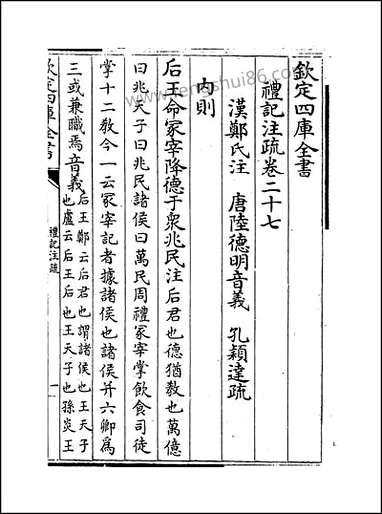 欽定四庫全書
禮記注疏卷二十七
漢鄭氏注 唐陸德明音義 孔穎達疏
內則
后王命冢宰降德于衆兆民注后君也德猶教也萬億
曰兆天子曰兆民諸侯曰萬民周禮冢宰掌飲食司徒
掌十二教今一云冢宰記者據諸侯也諸侯并六卿爲
三或兼職焉音義后王鄭云后君也謂諸侯也王天子
也盧云后王后也王天子也孫炎王
欽定四庫全書
禮記注疏
一
feng shui86.com